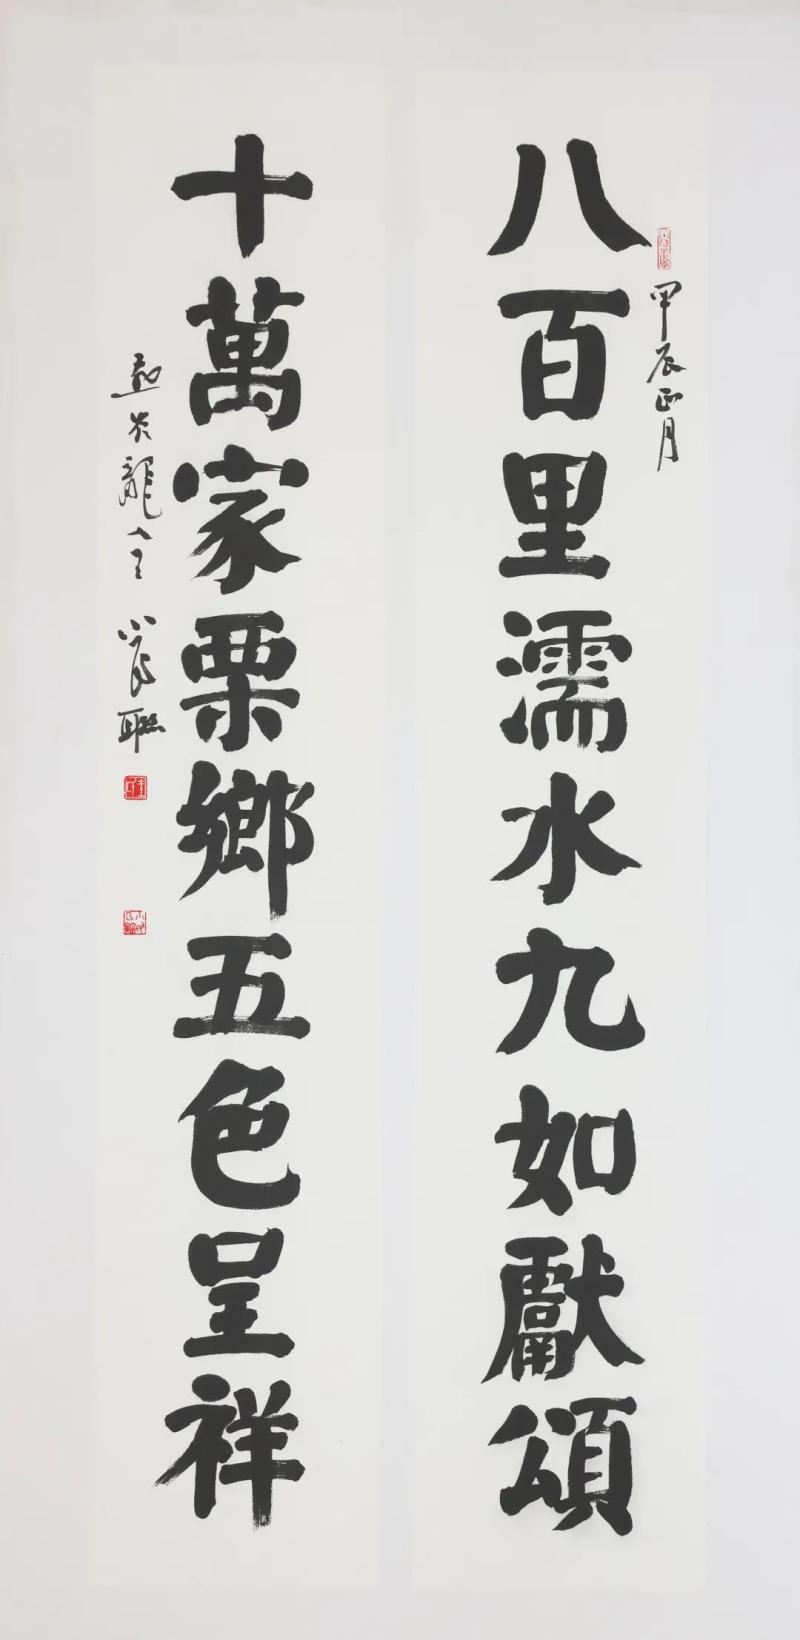 八百里濡水九如獻頌
甲辰正月
十萬家栗鄉五色呈祥
龍
聯